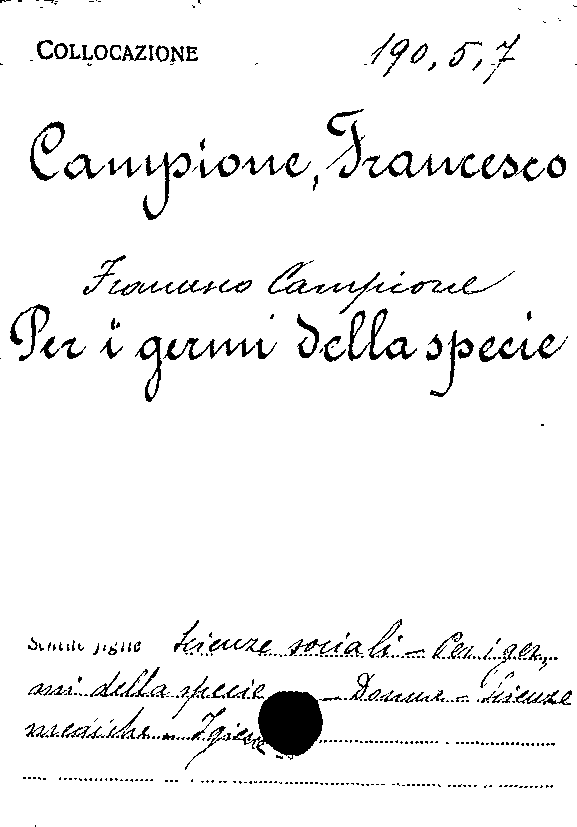 COLLOCAZIONE 190, 5, 7
Campione, Francesco
Francesco Campione
Per i germi della specie
Scienze sociali - Per i ger-
mi della specie - Donne - Scienze
mediche - Igiene